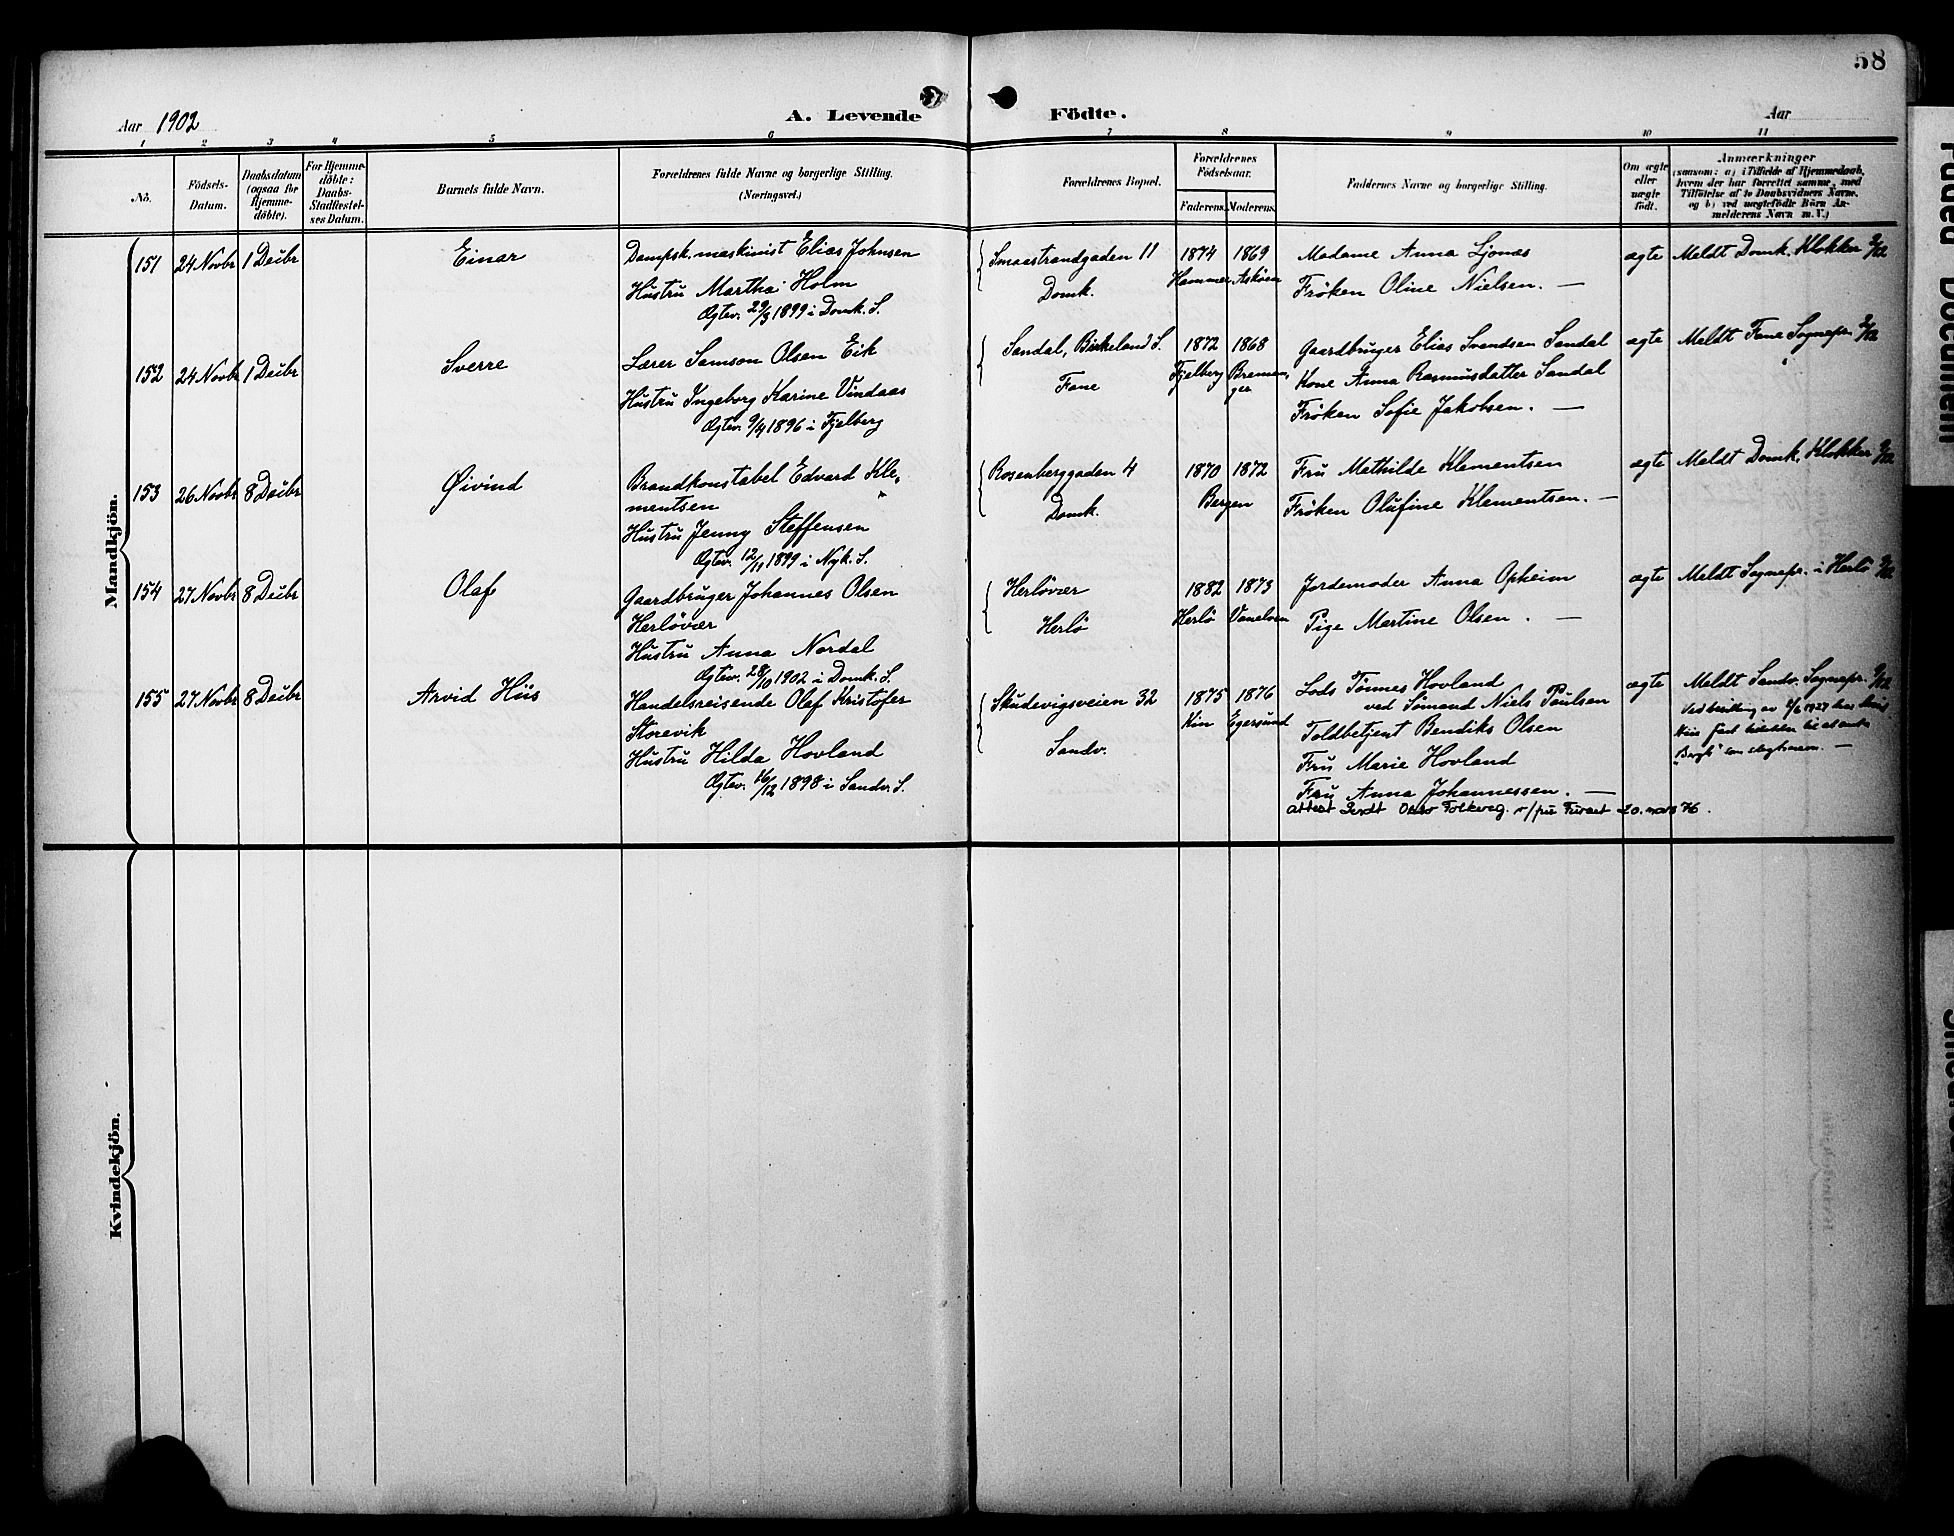 58
Aar 1902
A. Levende Födte.
Aar
1 2 3 4 5 6 7 8 9 10 11
No.
Födsels-
Datum.
Daabsdatum
(ogsaa for
Hjemme-
döbte).
For Hjemme-
döbte:
Daabs-
Stadfæstel-
ses Datum.
Barnets fulde Navn.
Forældrenes fulde Navne og borgerlige Stilling.
(Næringsvei.)
Forældrenes Bopæl.
Forældrenes
Födselsaar.
Faderens. Moderens.
Faddernes Navne og borgerlige Stilling.
Om ægte
eller
uægte
födt.
Anmærkninger
(saasom: a) i Tilfælde af Hjemmedaab,
hvem der har forrettet samme, med
Tilföielse af to Daabsvidners Navne,
og b) ved uægtefödte Börn An-
melderens Navn m. V.)
Mandkjön.
151 24 Novbr 1 Decbr Einar
Dampsk. maskinist Elias Johnsen
Hustru Martha Holm
Ægtev. 29/3 1899 i Domk. S.
Smaastrandgaden 11
Domk.
1874 1869
Hammer Askøen
Madame Anna Ljonas
Frøken Oline Nielsen. —
ægte
Meldt Domk. Klokker 2/12
152 24 Novbr 1 Decbr Sverre
Lærer Samson Olsen Eik
Hustru Ingeborg Karine Vindaas
Ægtev. 9/4 1896 i Fjelberg
Sandal, Birkeland S.
Fane
1872 1868
Fjelberg Breman-
ger
Gaardbruger Elias Svendsen Sandal
Kone Anna Rasmusdatter Sandal
Frøken Sofie Jakobsen. —
ægte
Meldt Fane Sognepr. 2/12
153 26 Novbr 8 Decbr Øivind
Brandkonstabel Edvard Kle-
mentsen
Hustru Jenny Steffensen
Ægtev. 12/11 1899 i Nyk. S.
Rosenberggaden 4
Domk.
1870 1872
Bergen
Fru Mathilde Klementsen
Frøken Olufine Klementsen. —
ægte
Meldt Domk. Klokker 9/12
154 27 Novbr 8 Decbr Olaf
Gaardbruger Johannes Olsen
Herløvær
Hustru Anna Nordal
Ægtev. 28/10 1902 i Domk. S.
Herløvær
Herlø
1882 1873
Herlø Vanelven
Jordemoder Anna Opheim
Pige Martine Olsen. —
ægte
Meldt Sognepr. i Herlø 9/12
155 27 Novbr 8 Decbr Arvid Hiis
Handelsreisende Olaf Kristofer
Storevik
Hustru Hilda Hovland
Ægtev. 26/12 1898 i Sandv. S.
Skudevigsveien 32
Sandv.
1875 1876
Kin Egersund
Lods Tönnes Hovland
ved Sömand Niels Paulsen
Toldbetjent Bendiks Olsen
Fru Marie Hovland
Fru Anna Johannessen. —
attest Sendt Oslo Folkereg. 20. 76.
ægte
Meldt Sandv. Sognepr. 9/12
Ved bevilling av 1927 har
"Bergh" som slegtsnavn. —
Kvindekjön.